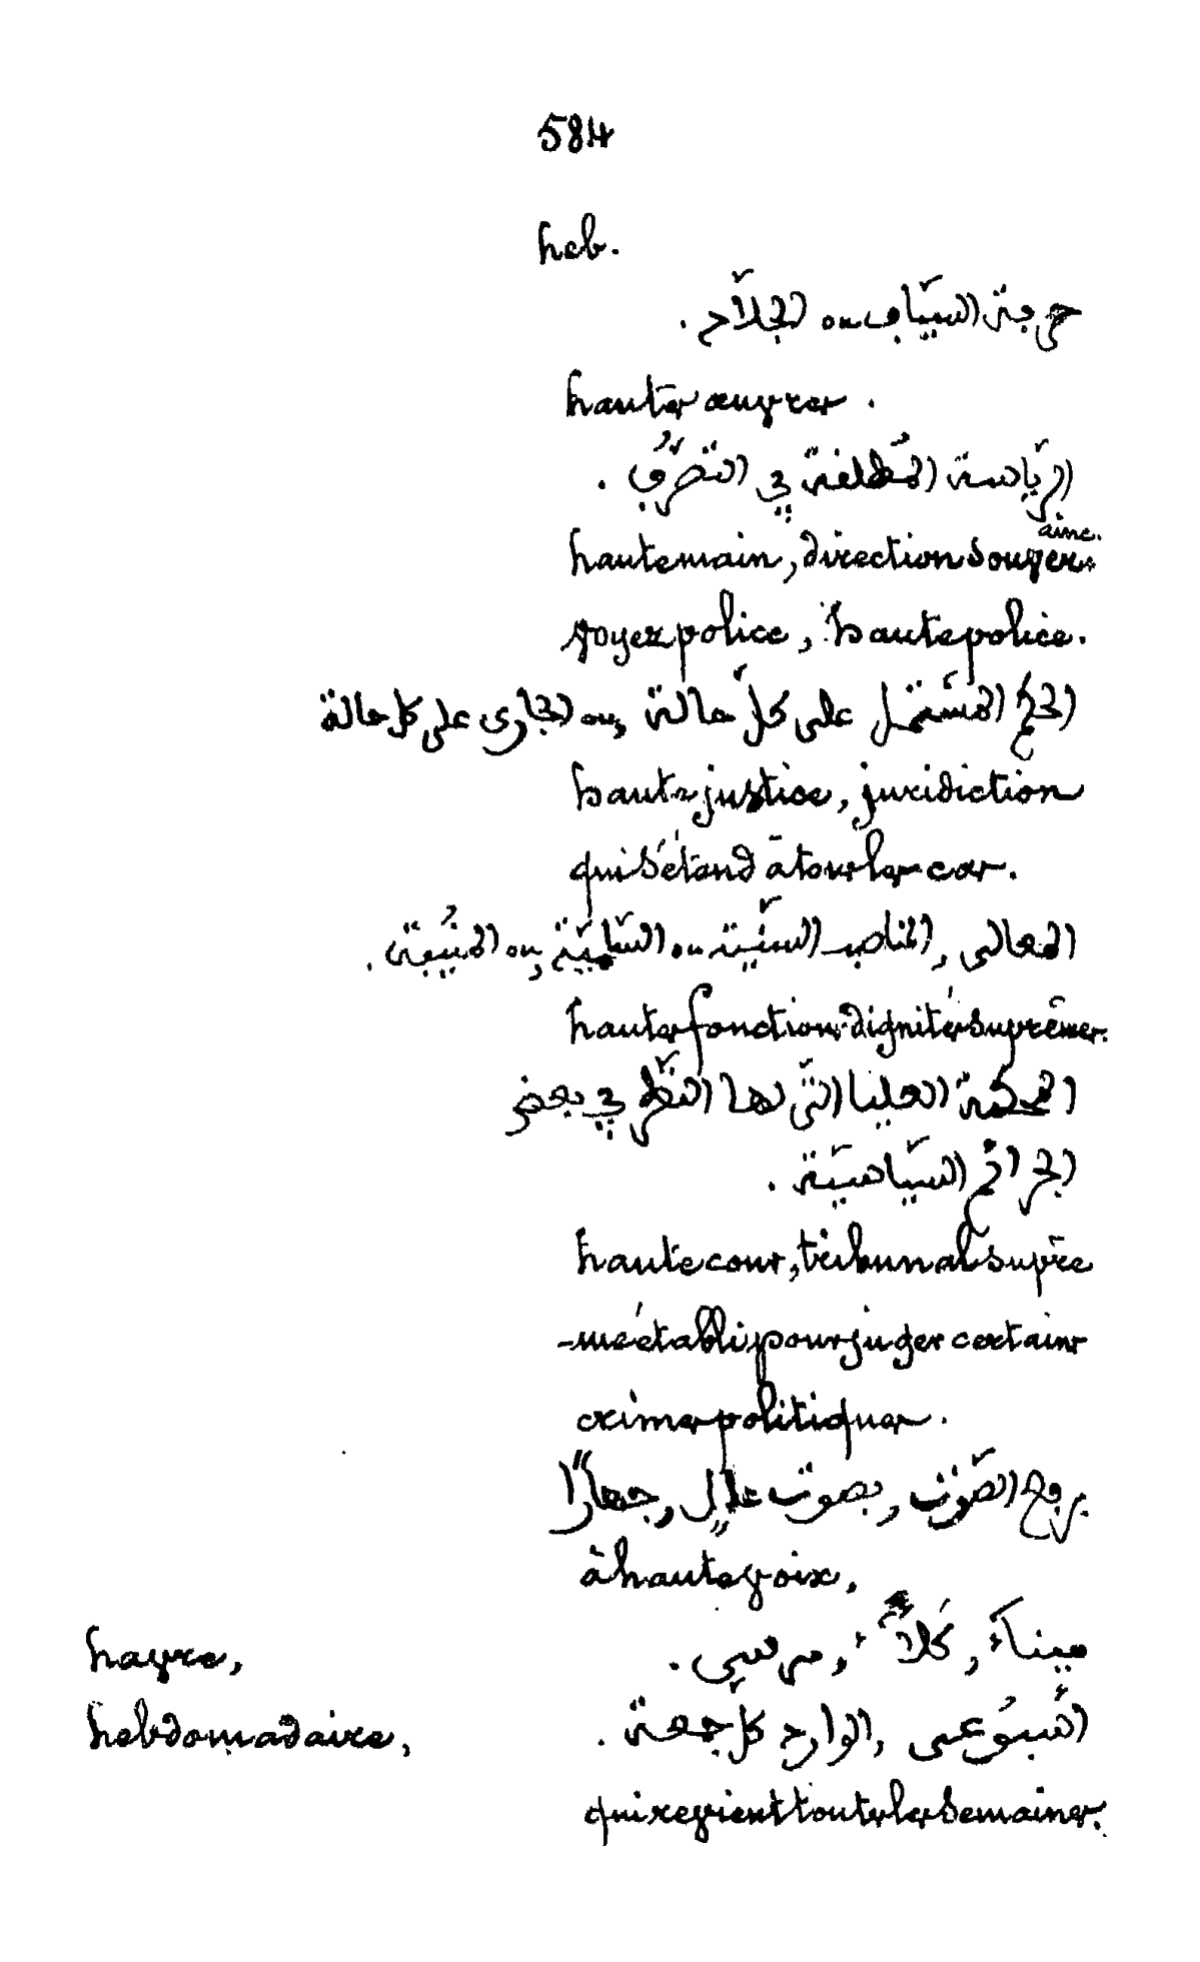 584
heb.
حرفة السيّاف ou الجلّاد.
hautes œuvres.
الرّياسة المُطلقة في التصرُّف.
haute main, direction souveraine.
voyez police, haute police.
الحكم المشتمل على كلّ حالة, ou الجارى على كل حالة
haute justice, juridiction
qui s'étend à tous les cas.
المعالى, المناصب السنّية ou السّامية, ou المنيفة.
hautes fonctions, dignités suprêmes.
المحكمة العليا الّتى لها النّظر في بعض
الجرائم السّياسيّة.
haute cour, tribunal suprê
-me établi pour juger certains
crimes politiques.
برفع الصّوت, بصوت عالٍ, جهارًا
à haute voix,
havre, ميناء, كلاّء, مرسى.
hebdomadaire, اُسبوُعى, الوارد كل جمعة.
qui revient toutes les semaines.